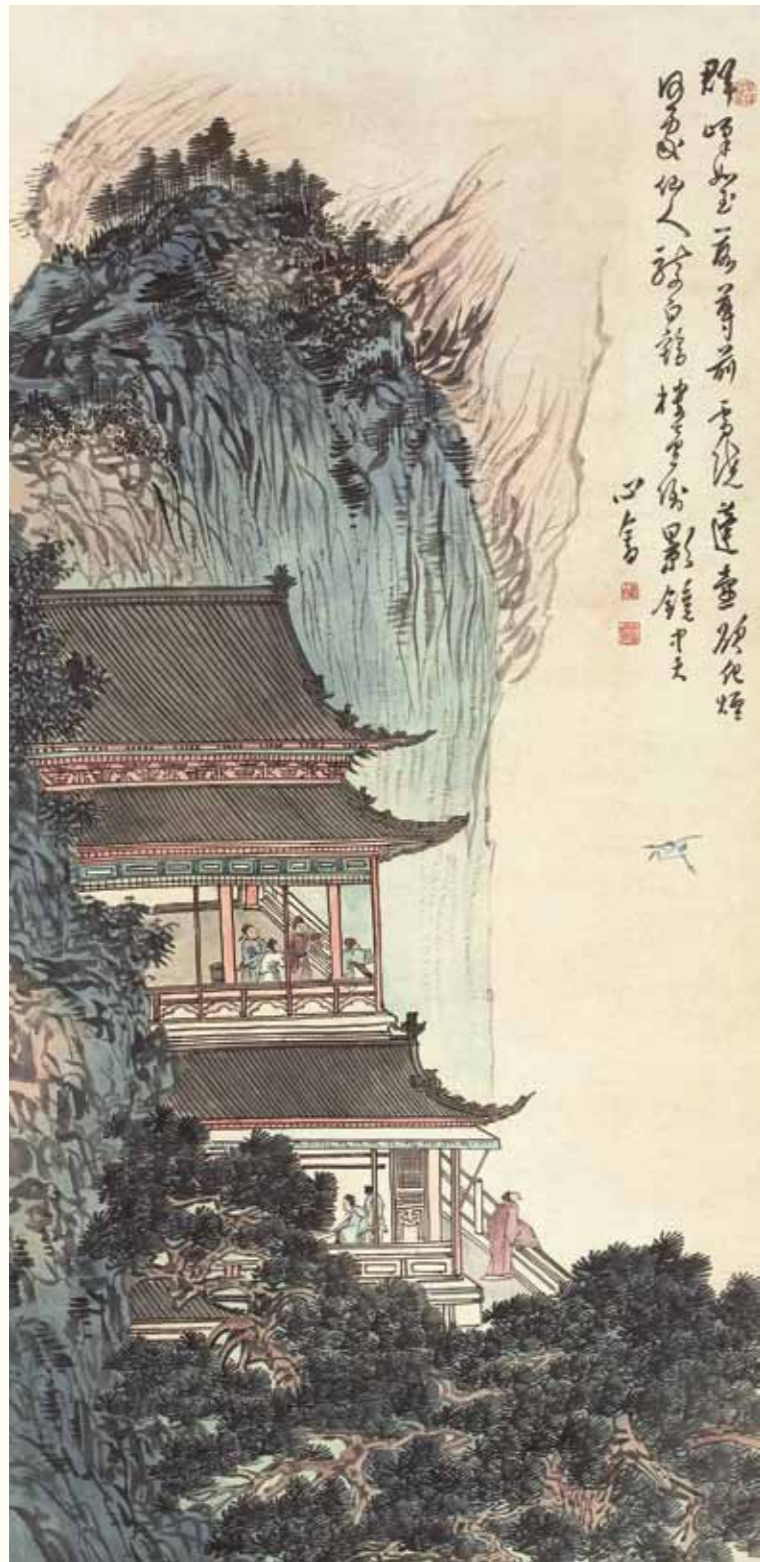 群峰如玉落尊前雲繞蓬壺欲化煙
何處仙人騎白鶴樓臺倒影鏡中天
心畬